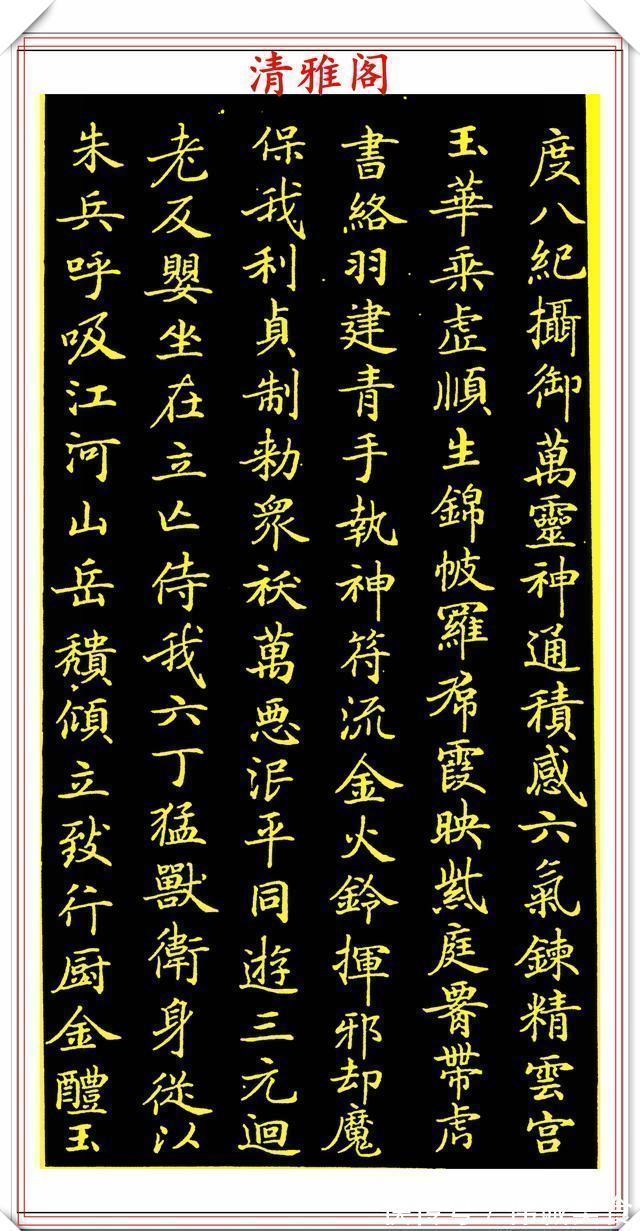 清雅阁
度八紀攝御萬靈神通積感六氣鍊精雲宮
玉華乘虛順生錦帔羅帬霞映紫庭署帶虎
書絡羽建青手執神符流金火鈴揮邪却魔
保我利貞制勑衆袄萬惡泯平同遊三元迴
老反嬰坐在立亾侍我六丁猛獸衛身從以
朱兵呼吸江河山岳穨傾立致行厨金醴玉